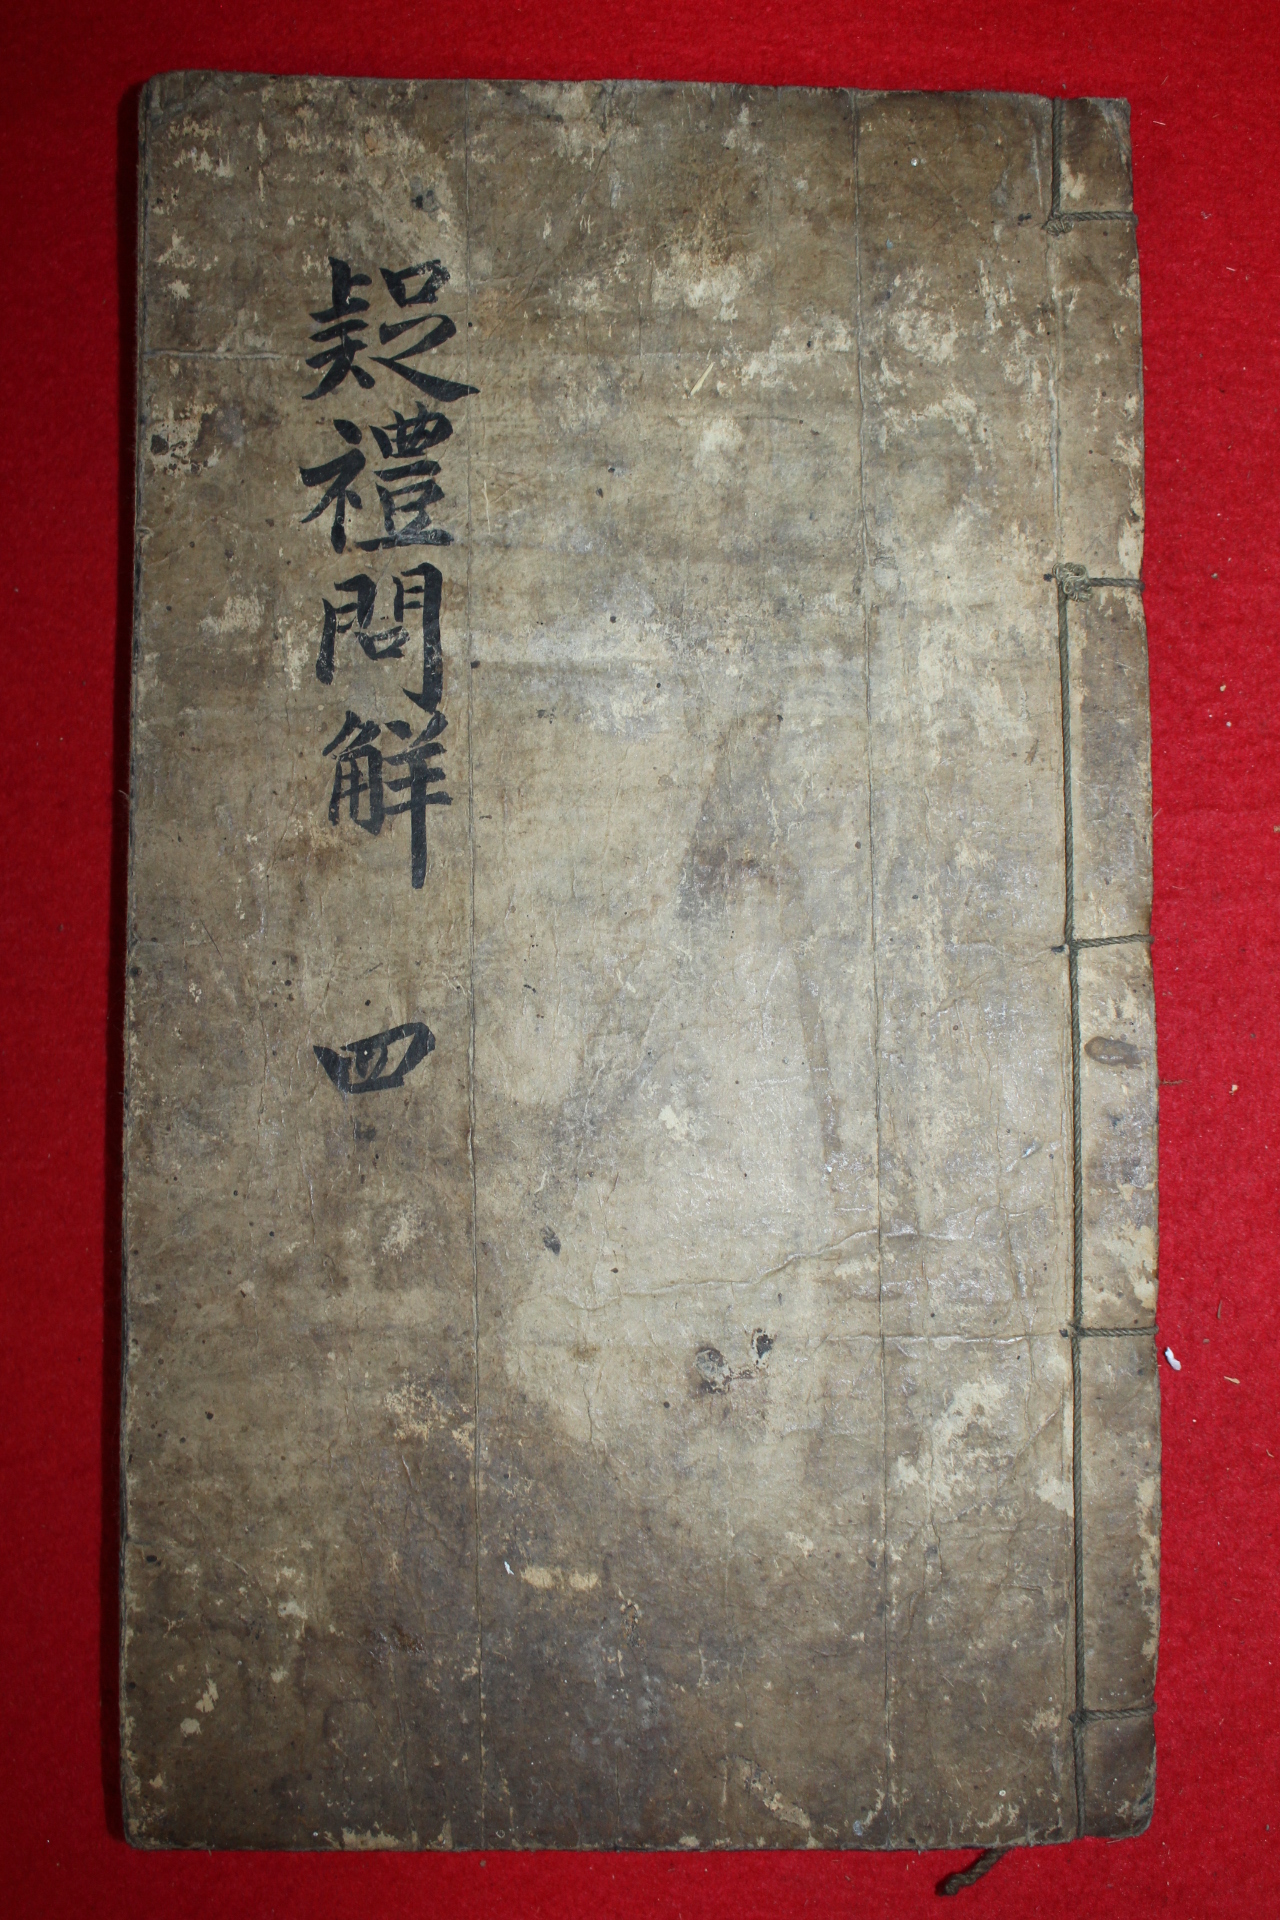 疑禮問解 四